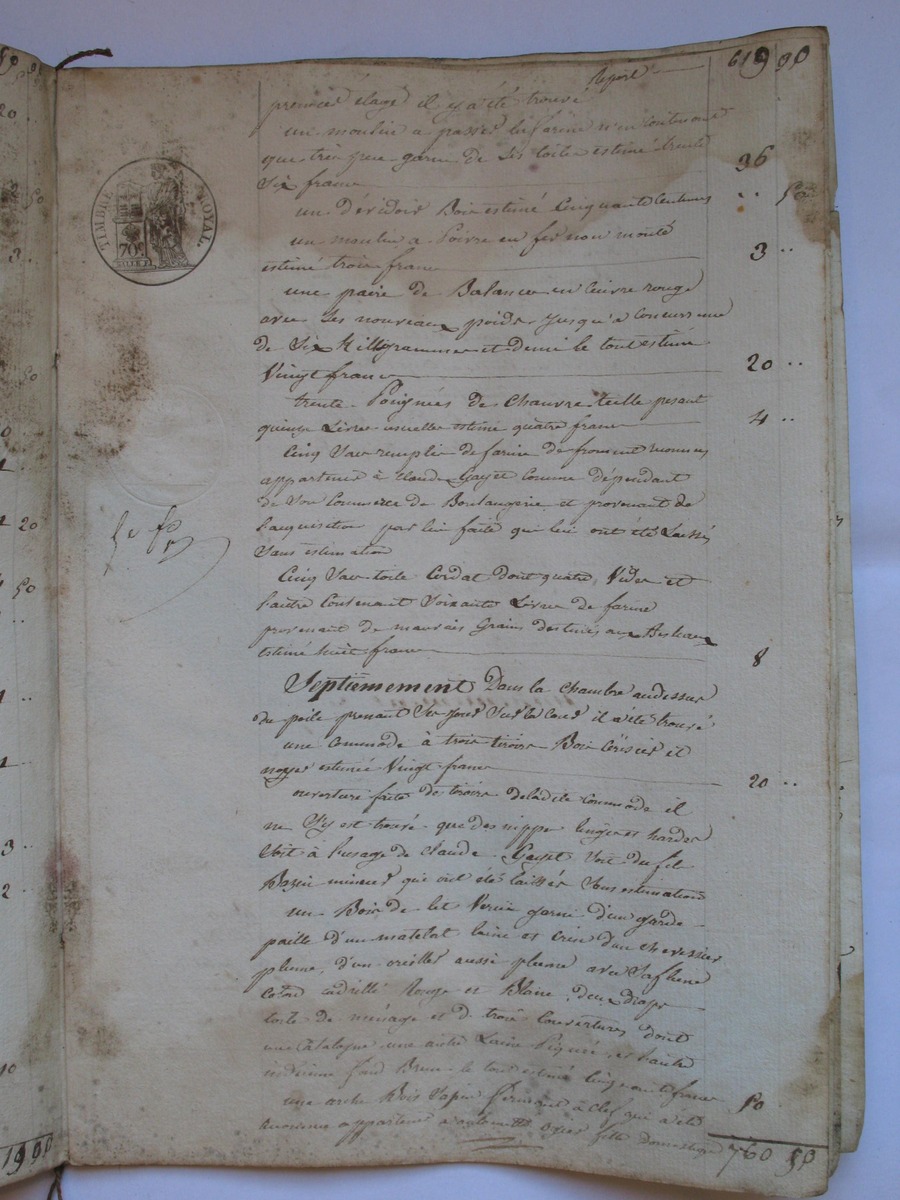 Report 619 90
premier étage il y a été trouvé
un moulin a passer la farine n'en contenant
que très peu garni de ses toiles estimé trente
six francs 36
un dévidoir Bois estimé Cinquante Centimes .. 50
un moulin a Poivre en fer non monté
estimé trois francs 3 ..
une paire de Balances en Cuivre rouge
avec ses nouveaux poids jusqu'a concurrence
de Six Killogrammes et demi le tout estimé
Vingt francs 20 ..
trente Poignées de chanvre teille pesant
quinze Livres usuelles estimé quatre francs 4 ..
Cinq Sacs remplis de farine de froment reconnus
appartenir à Claude Gayet comme dépendant
de son Commerce de Boulangerie et provenant de
l'acquisition par lui faite qui lui ont été Laissés
Sans estimation
Cinq Sacs toile dont quatre Vides et
l'autre Contenant Soixante Livres de farine
provenant de mauvais Grains destinés aux Bestiaux
estimé huit francs 8
Septièmement Dans la chambre au dessus
du poile prenant Ses jours Sur la Cour il a été trouvé
une commode à trois tiroirs Bois Cerisier et
noyer estimée Vingt francs 20 ..
ouverture faite des tiroirs de ladite Commode il
ne S'y est trouvé que des nippes linges et hardes
Soit à l'usage de Claude Gayet Soit du fils
mineur qui ont été laissés Sans estimation
un Bois de lit Verni garni d'un garde
paille d'un matelat laine et crin d'un chevessier
plume, d'un oreiller aussi plume avec Sa
Coton cadrillé Rouge et Blanc, deux draps
toile de ménage et de trois Couvertures dont
une Catalogne, une autre Laine Piquée, et l'autre
indienne fond Brun le tout estimé Cinquante francs 50
une arche Bois Sapin fermant à clef qui a été
reconnue appartenir a fille Domestique 760 50
TIMBRE ROYAL.
70c